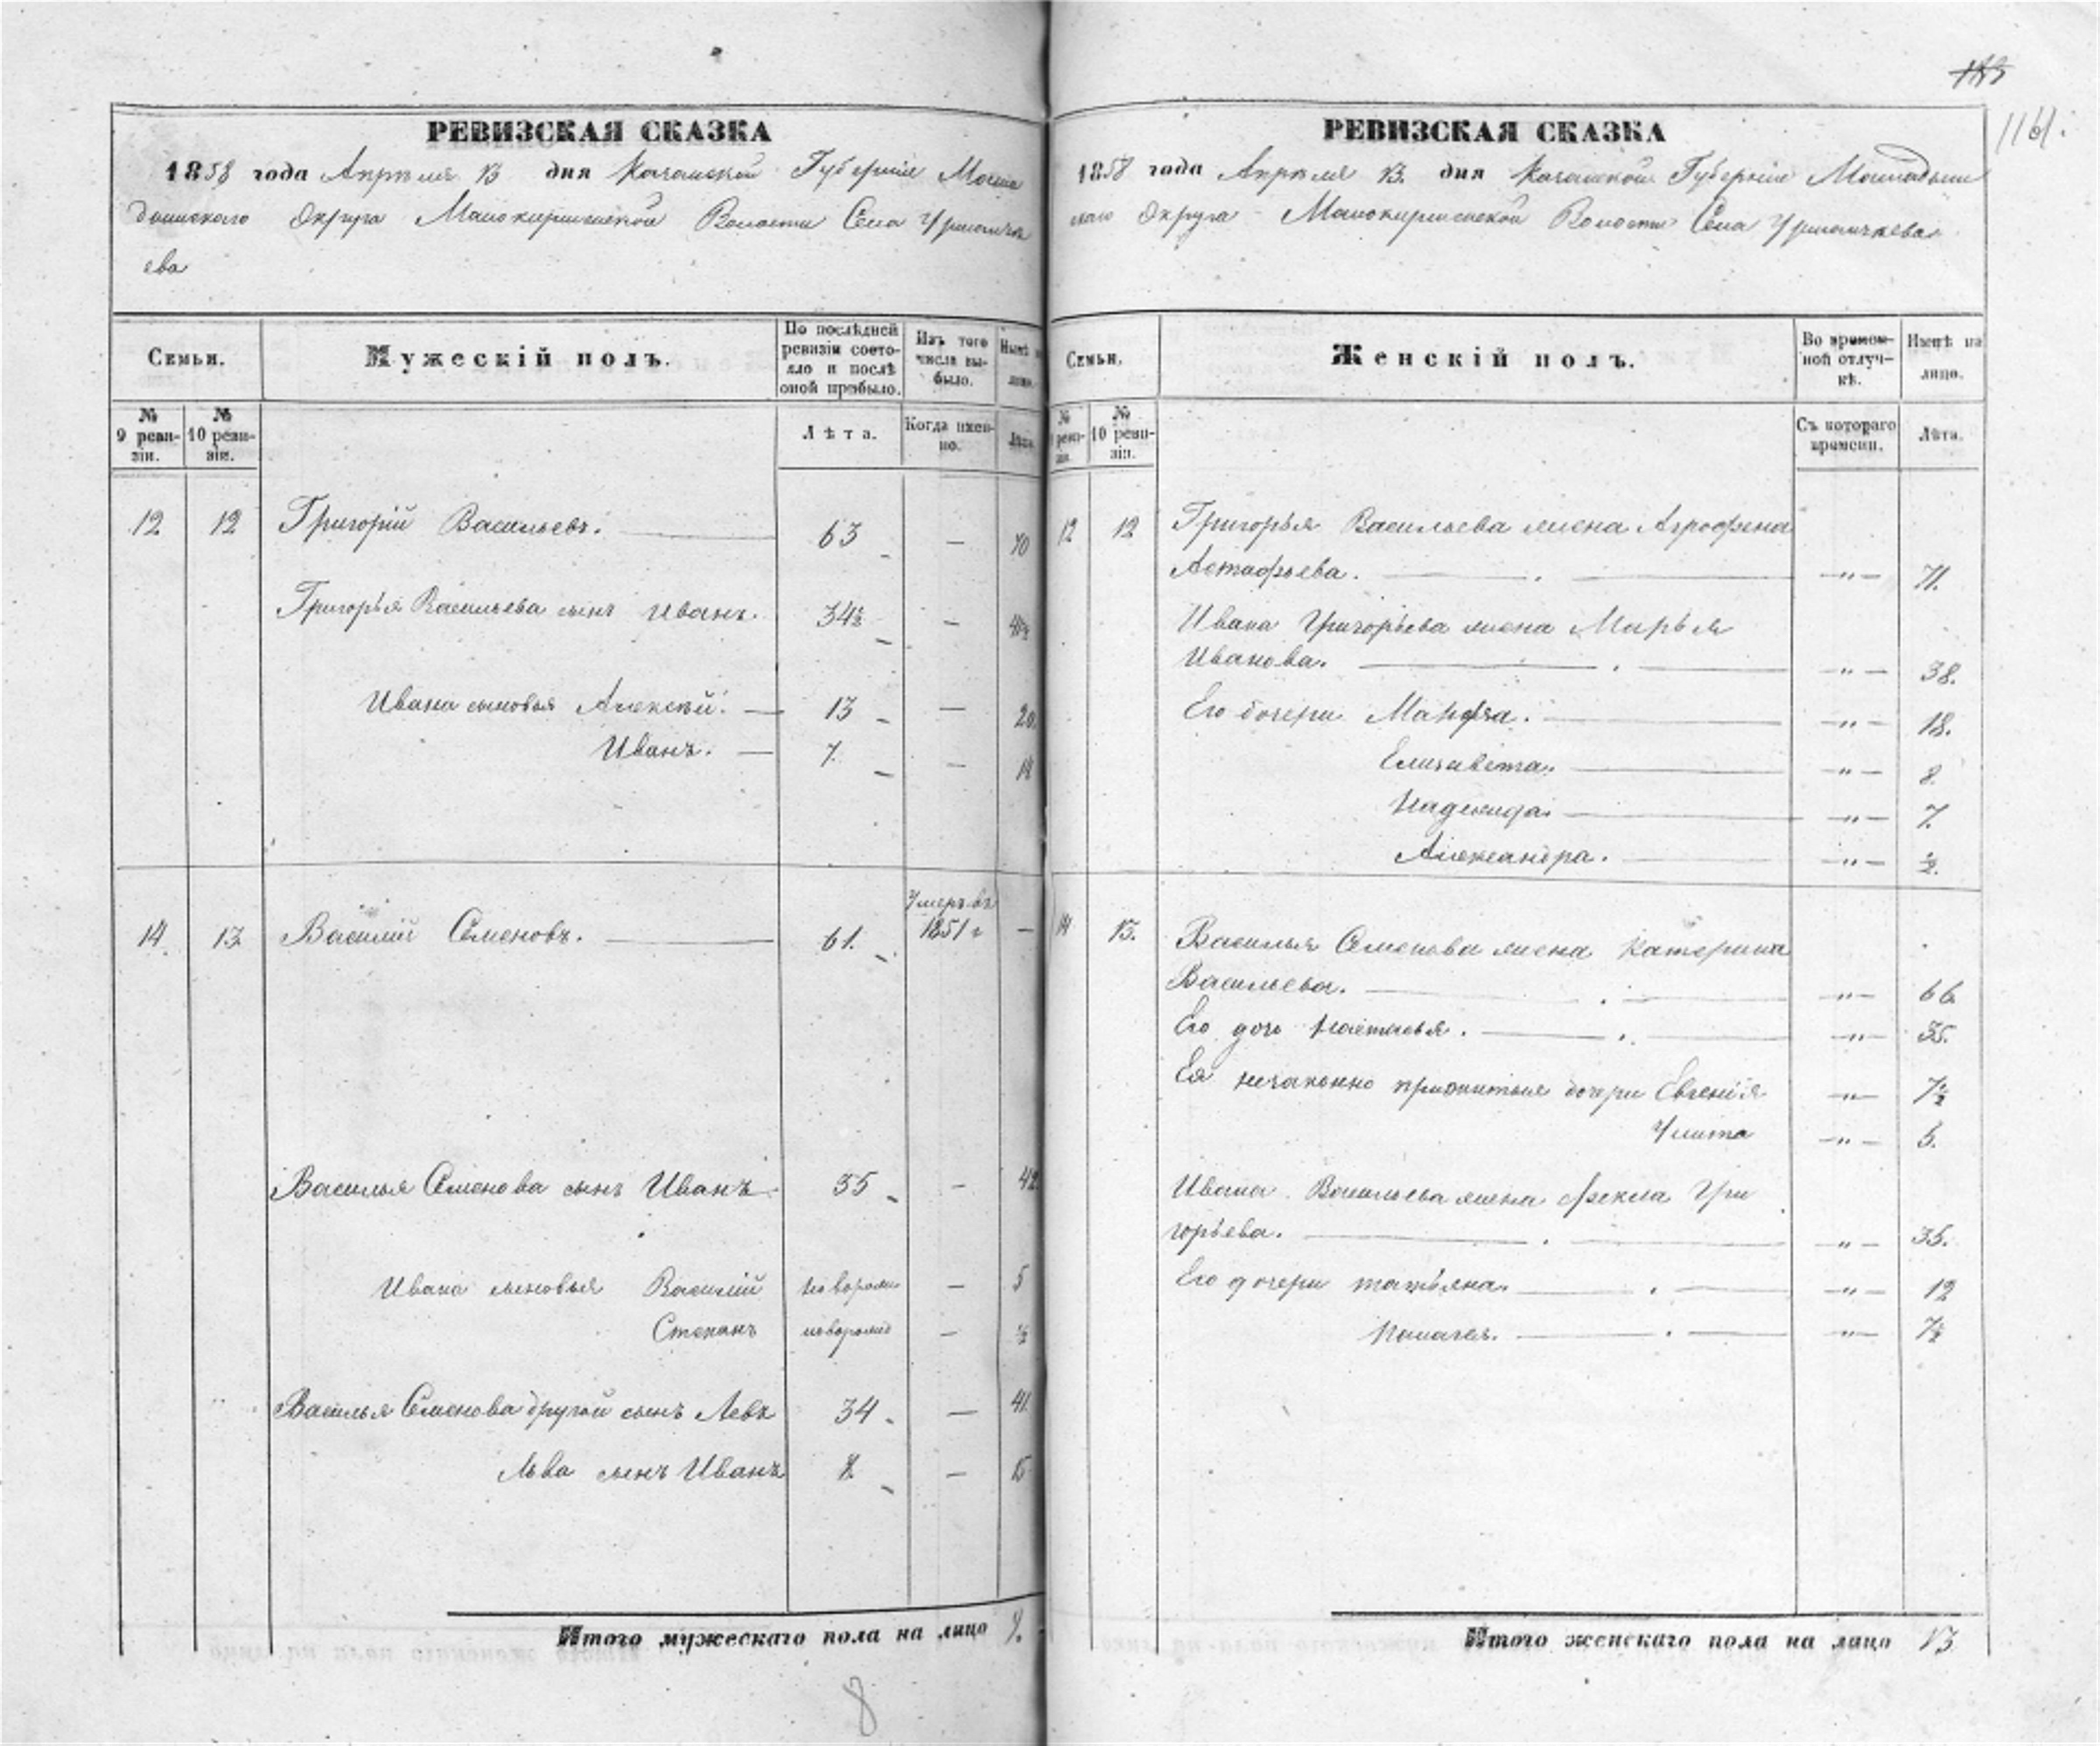 115
1161.
РЕВИЗСКАЯ СКАЗКА
1858 года Апрѣля 13 дня Казанской Губерніи Мама
дышскаго Округа Малокирменской Волости Села Урманчѣ
ева
Семьи.
Мужескій полъ.
По послѣдней ревизіи состояло и послѣ оной прибыло.
Изъ того числа выбыло.
Нынѣ на лицо.
№ 9 ревизіи.
№ 10 ревизіи.
Лѣта.
Когда именно.
Лѣта.
12 12 Григорій Васильевъ. 63 — 70
Григорья Васильева сынъ Иванъ. 34½ — 41½
Ивана сыновья Алексѣй. 13 — 20
Иванъ. 7. — 14
14 13 Василій Семеновъ. 61. Умеръ въ 1851 г —
Василья Семенова сынъ Иванъ 35 — 42
Ивана сыновья Василій новорожд — 5
Степанъ новорожд — ½
Василья Семенова другой сынъ Левъ 34 — 41
Льва сынъ Иванъ 8. — 15
Итого мужескаго пола на лицо 9.
8
РЕВИЗСКАЯ СКАЗКА
1858 года Апрѣля 13. дня Казанской Губерніи Мамадыш
скаго Округа Малокирменской Волости Села Урманчѣева
Семьи.
Женскій полъ.
Во временной отлучкѣ.
Нынѣ на лицо.
№ ревизіи.
№ 10 ревизіи.
Съ котораго времени.
Лѣта.
12 12 Григорья Васильева жена Аграфена
Астафьева. —"— 71.
Ивана Григорьева жена Марья
Иванова. —"— 38.
Его дочери Марфа. —"— 18.
Елизавета. —"— 8.
Надежда. —"— 7.
Александра. —"— ½.
14 13. Василья Семенова жена Катерина
Васильева. —"— 66
Его дочь Настасья. —"— 35.
Ея незаконно прижитыя дочери Евгенія —"— 7½
Улита —"— 5.
Ивана Васильева жена Фекла Гри
горьева. —"— 35.
Его дочери Татьяна. —"— 12
Палагея. —"— 7½
Итого женскаго пола на лицо 13